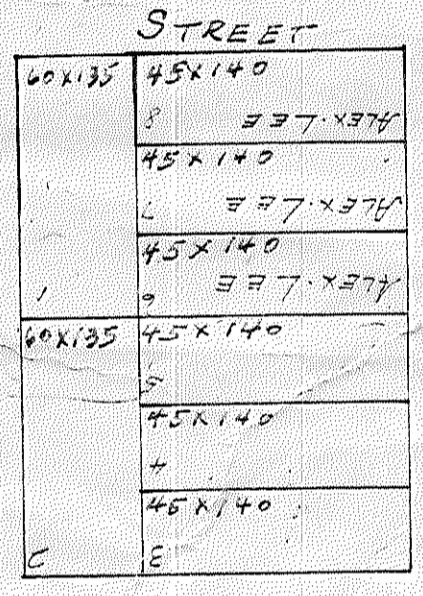 STREET
60X135
1
45X140
8
ALEX. LEE
45X140
7
ALEX. LEE
45X140
6
ALEX. LEE
60X135
2
45X140
5
45X140
4
45X140
3